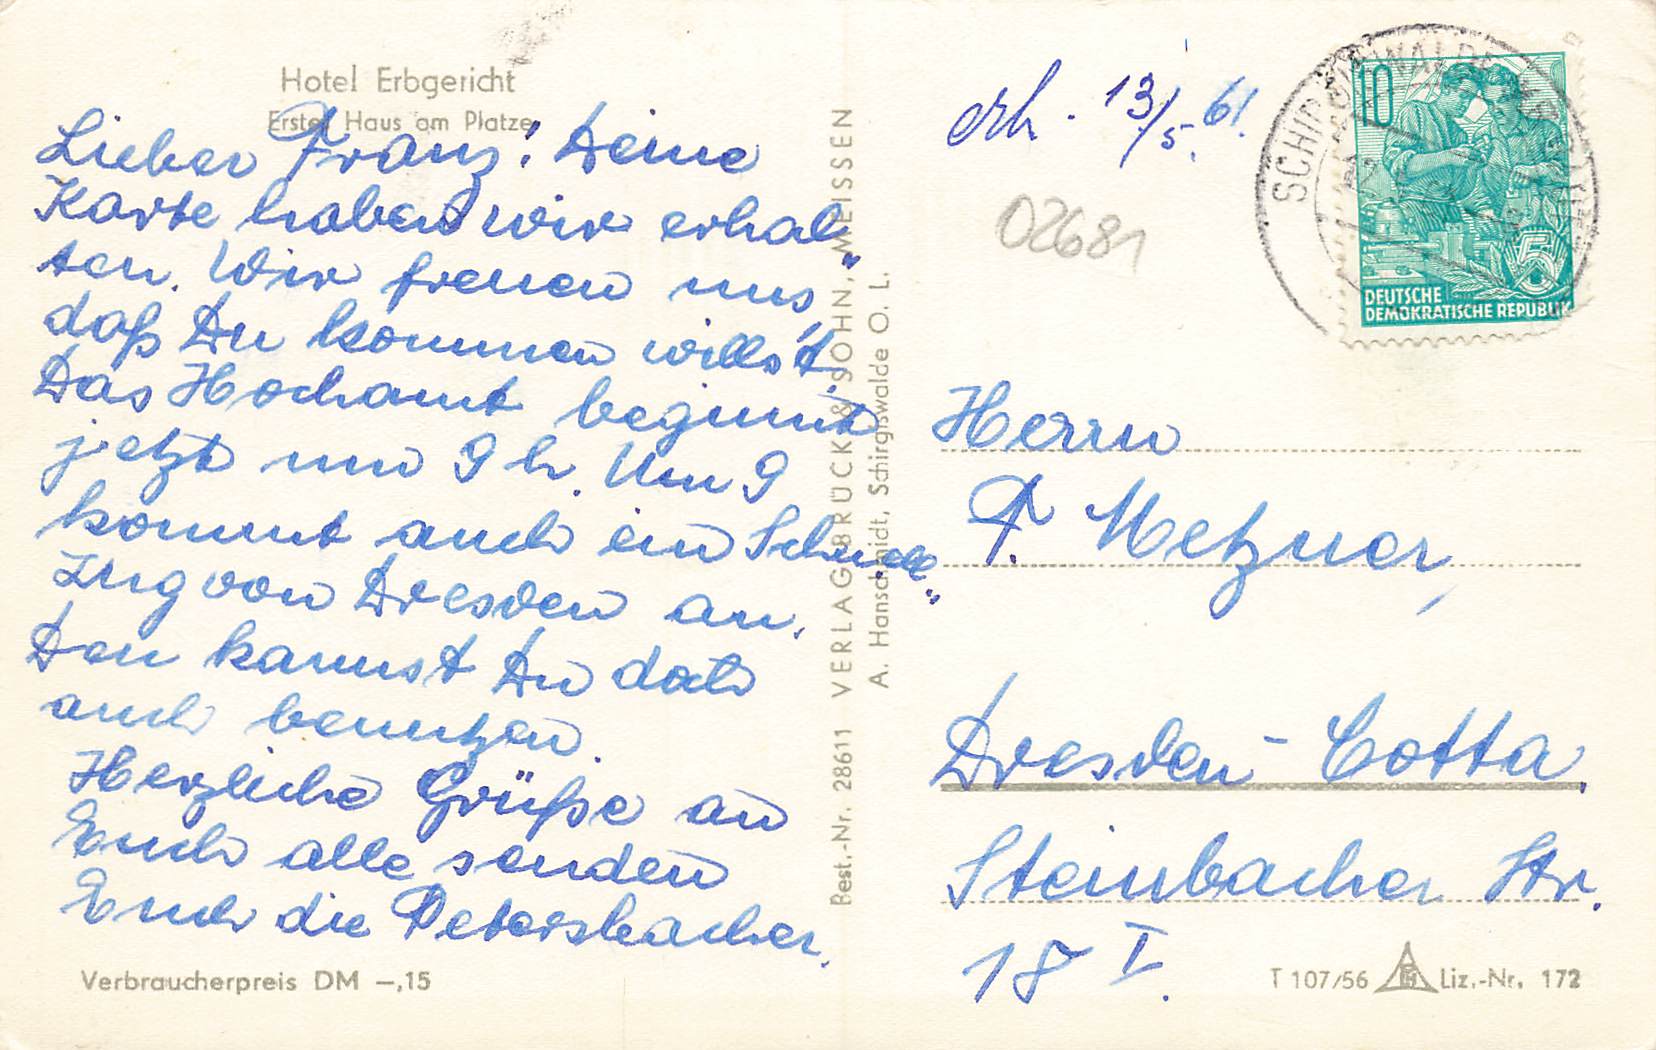 Hotel Erbgericht
Erstes Haus am Platze
Lieber Franz! Deine
Karte haben wir erhal„
ten. Wir freuen uns,
daß Du kommen willst.
Das Hochamt beginnt
jetzt um 9 h. Um 9
kommt auch ein Schnell„
Zug von Dresden an.
Den kannst Du doch
auch benutzen.
Herzliche Grüße an
Euch alle senden
Euch die Petersbacher.
Verbraucherpreis DM —,15
Best.-Nr. 28611 VERLAG BRÜCK & SOHN, MEISSEN
A. Hanschmidt, Schirgiswalde O. L.
erh. 13/5. 61.
02681
10
DEUTSCHE
DEMOKRATISCHE REPUBLIK
5
Herrn
F. Metzner,
Dresden-Cotta,
Steinbacher Str.
18 I.
T 107/56 Liz.-Nr. 172